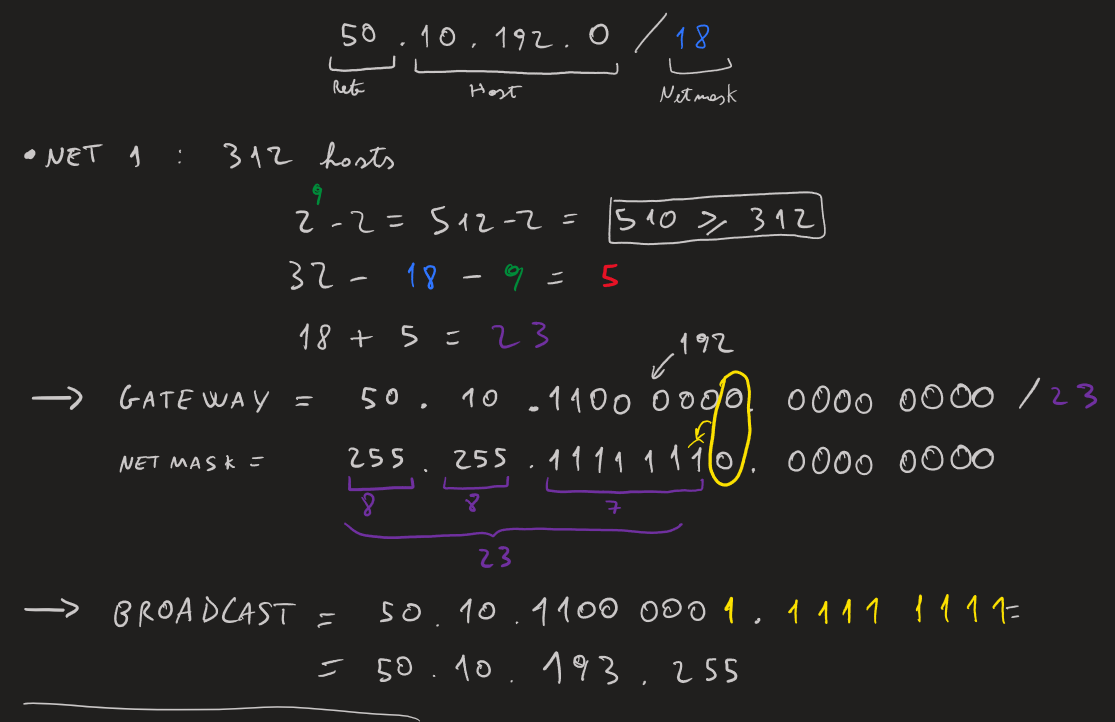 50.10.192.0/18
Rete Host Netmask
• NET 1 : 312 hosts
2⁹-2 = 512-2 = 510 ⩾ 312
32 - 18 - 9 = 5
18 + 5 = 23
192
→ GATEWAY = 50.10.1100 0000.0000 0000/23
NETMASK = 255.255.1111 1110.0000 0000
8 8 7
23
→ BROADCAST = 50.10.1100 0001.1111 1111=
= 50.10.193.255